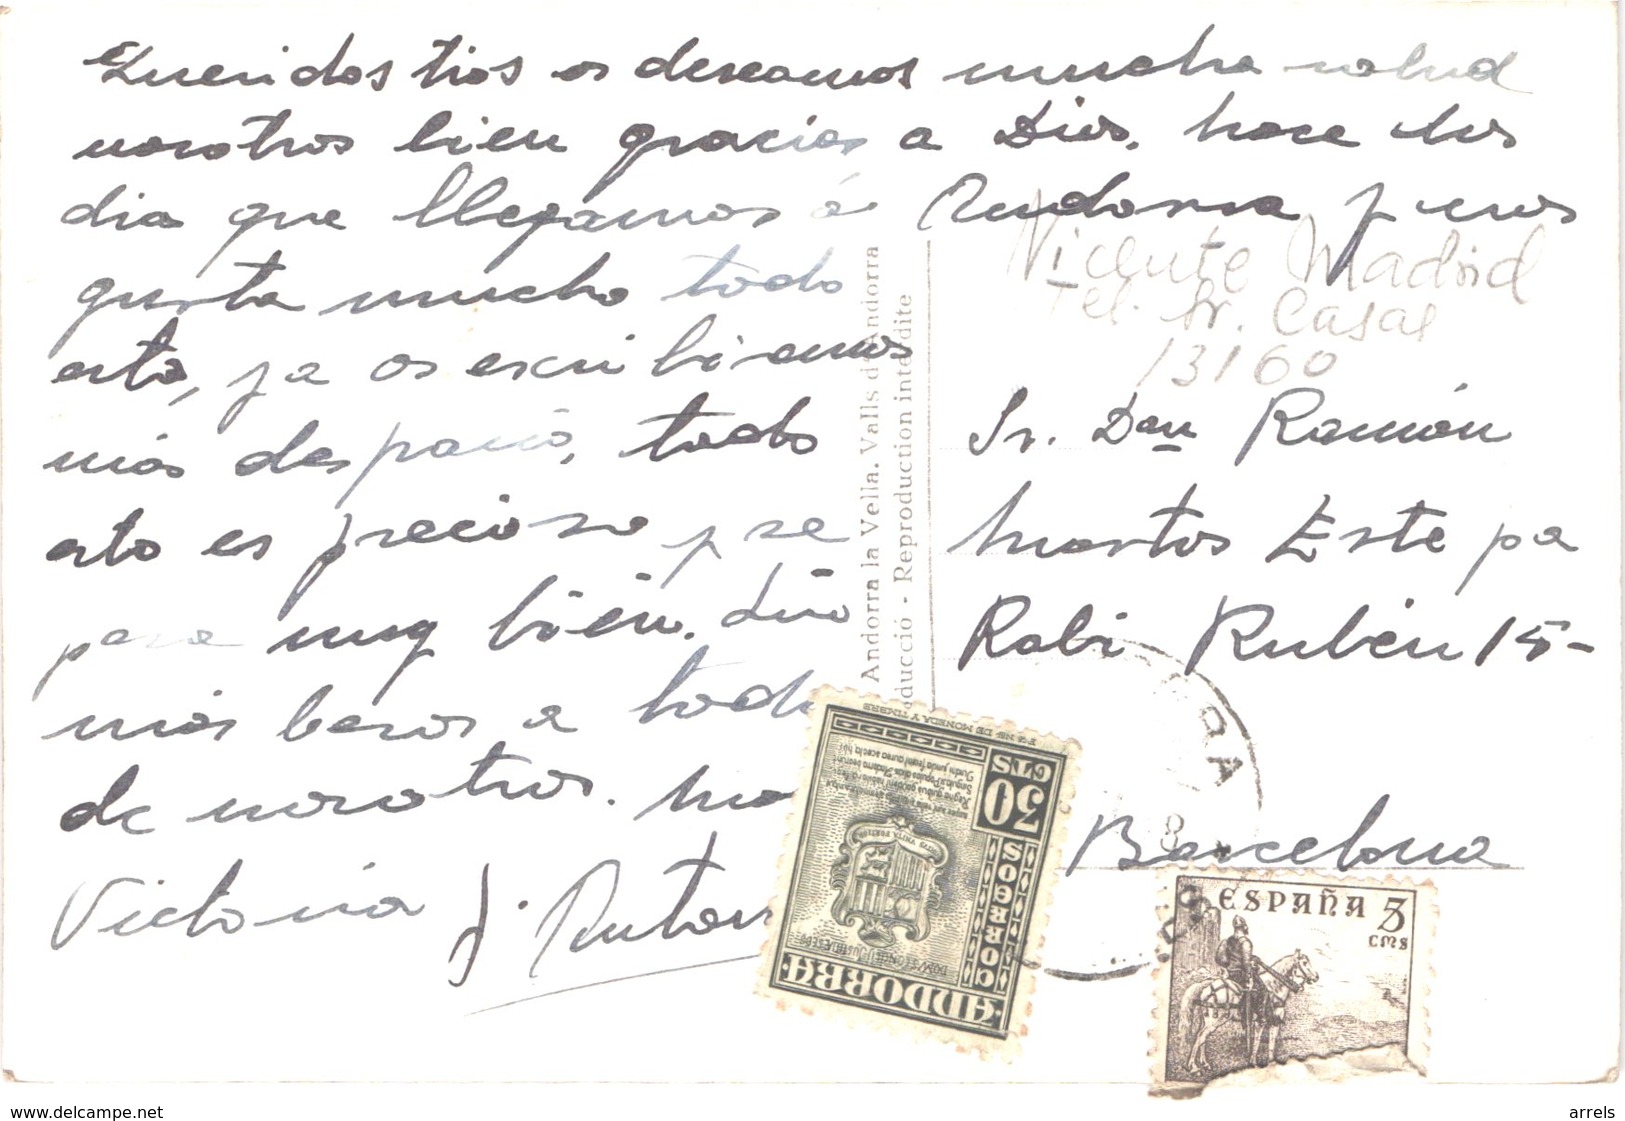 Queridos tios os deseamos mucha salud
nosotros bien gracias a Dios. hace dos
dia que llegamos á Andorra y nos
gusta mucho todo
esto, ya os escribiremos
más despacio, todo
esto es precioso y se
pasa muy bien. Sin
más besos a todos
de nosotros.
Victoria y
Vicente Madrid
Tel. Sr. Casas
13160
Sr. Don Ramón
Martos Estepa
Rabi Rubén 15-
Barcelona
Andorra la Vella. Valls d'Andorra
Reproduction interdite
ANDORRA
CORREOS
50 CTS
ESPAÑA 5
CMS
www.delcampe.net
arrels